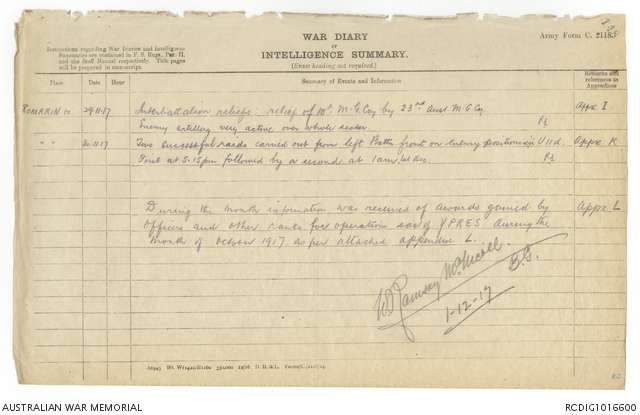 WAR DIARY
or
INTELLIGENCE SUMMARY.
(Erase heading not required.)
Army Form C. 2118.
Instructions regarding War Diaries and Intelligence
Summaries are contained in F. S. Regs., Part II.
and the Staff Manual respectively. Title pages
will be prepared in manuscript.
Place
Date
Hour
Summary of Events and Information
Remarks and
references to
Appendices
ROMARIN 29-11-17 Interbattalion reliefs: relief of M.G. Coy by 23rd Aust M.G. Coy Appx I
Enemy artillery very active over whole sector.
" " 30-11-17 Two successful raids carried out from left Battn front on enemy positions in U 11 d. Appx K
First at 5-15pm followed by a second at 1 am, 1st Dec
During the month information was received of awards gained by Appx L
Officers and other ranks for operations east of YPRES during the
month of October 1917 as per attached appendix L.
W Ramsay McNicoll.
B.G.
1-12-17
AUSTRALIAN WAR MEMORIAL
RCDIG1016600